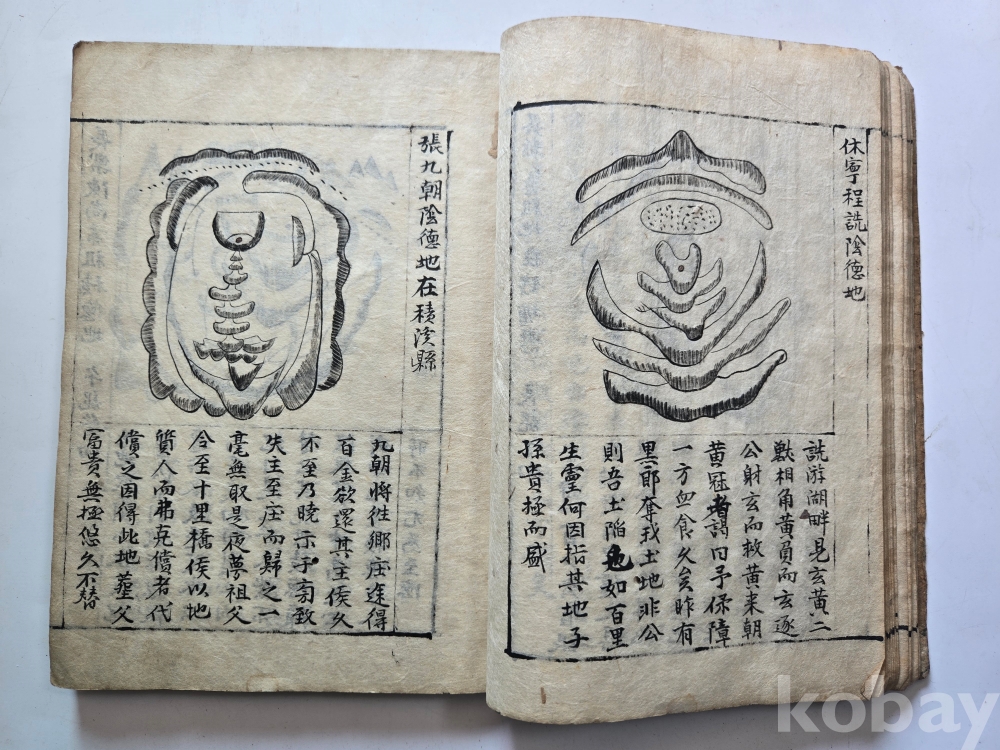 休寧程詵陰德地
詵游湖畔見玄黃二
獸相角黃負而玄逐
公射玄而救黃来朝
黄冠者謁曰予保障
一方血食久矣昨有
黑郎奪我土地非公
則吾土陷如百里
生靈何因指其地子
孫貴極而盛
張九朝陰德地在積溪縣
九朝將徃鄉庄逢得
百金欲還其主俟久
不至乃曉示于衢致
失主至庄而歸之一
毫無取是夜夢祖父
令至十里橋俟以地
質人而弗克償者代
償之因得此地葬父
富貴無極悠久不替
kobay